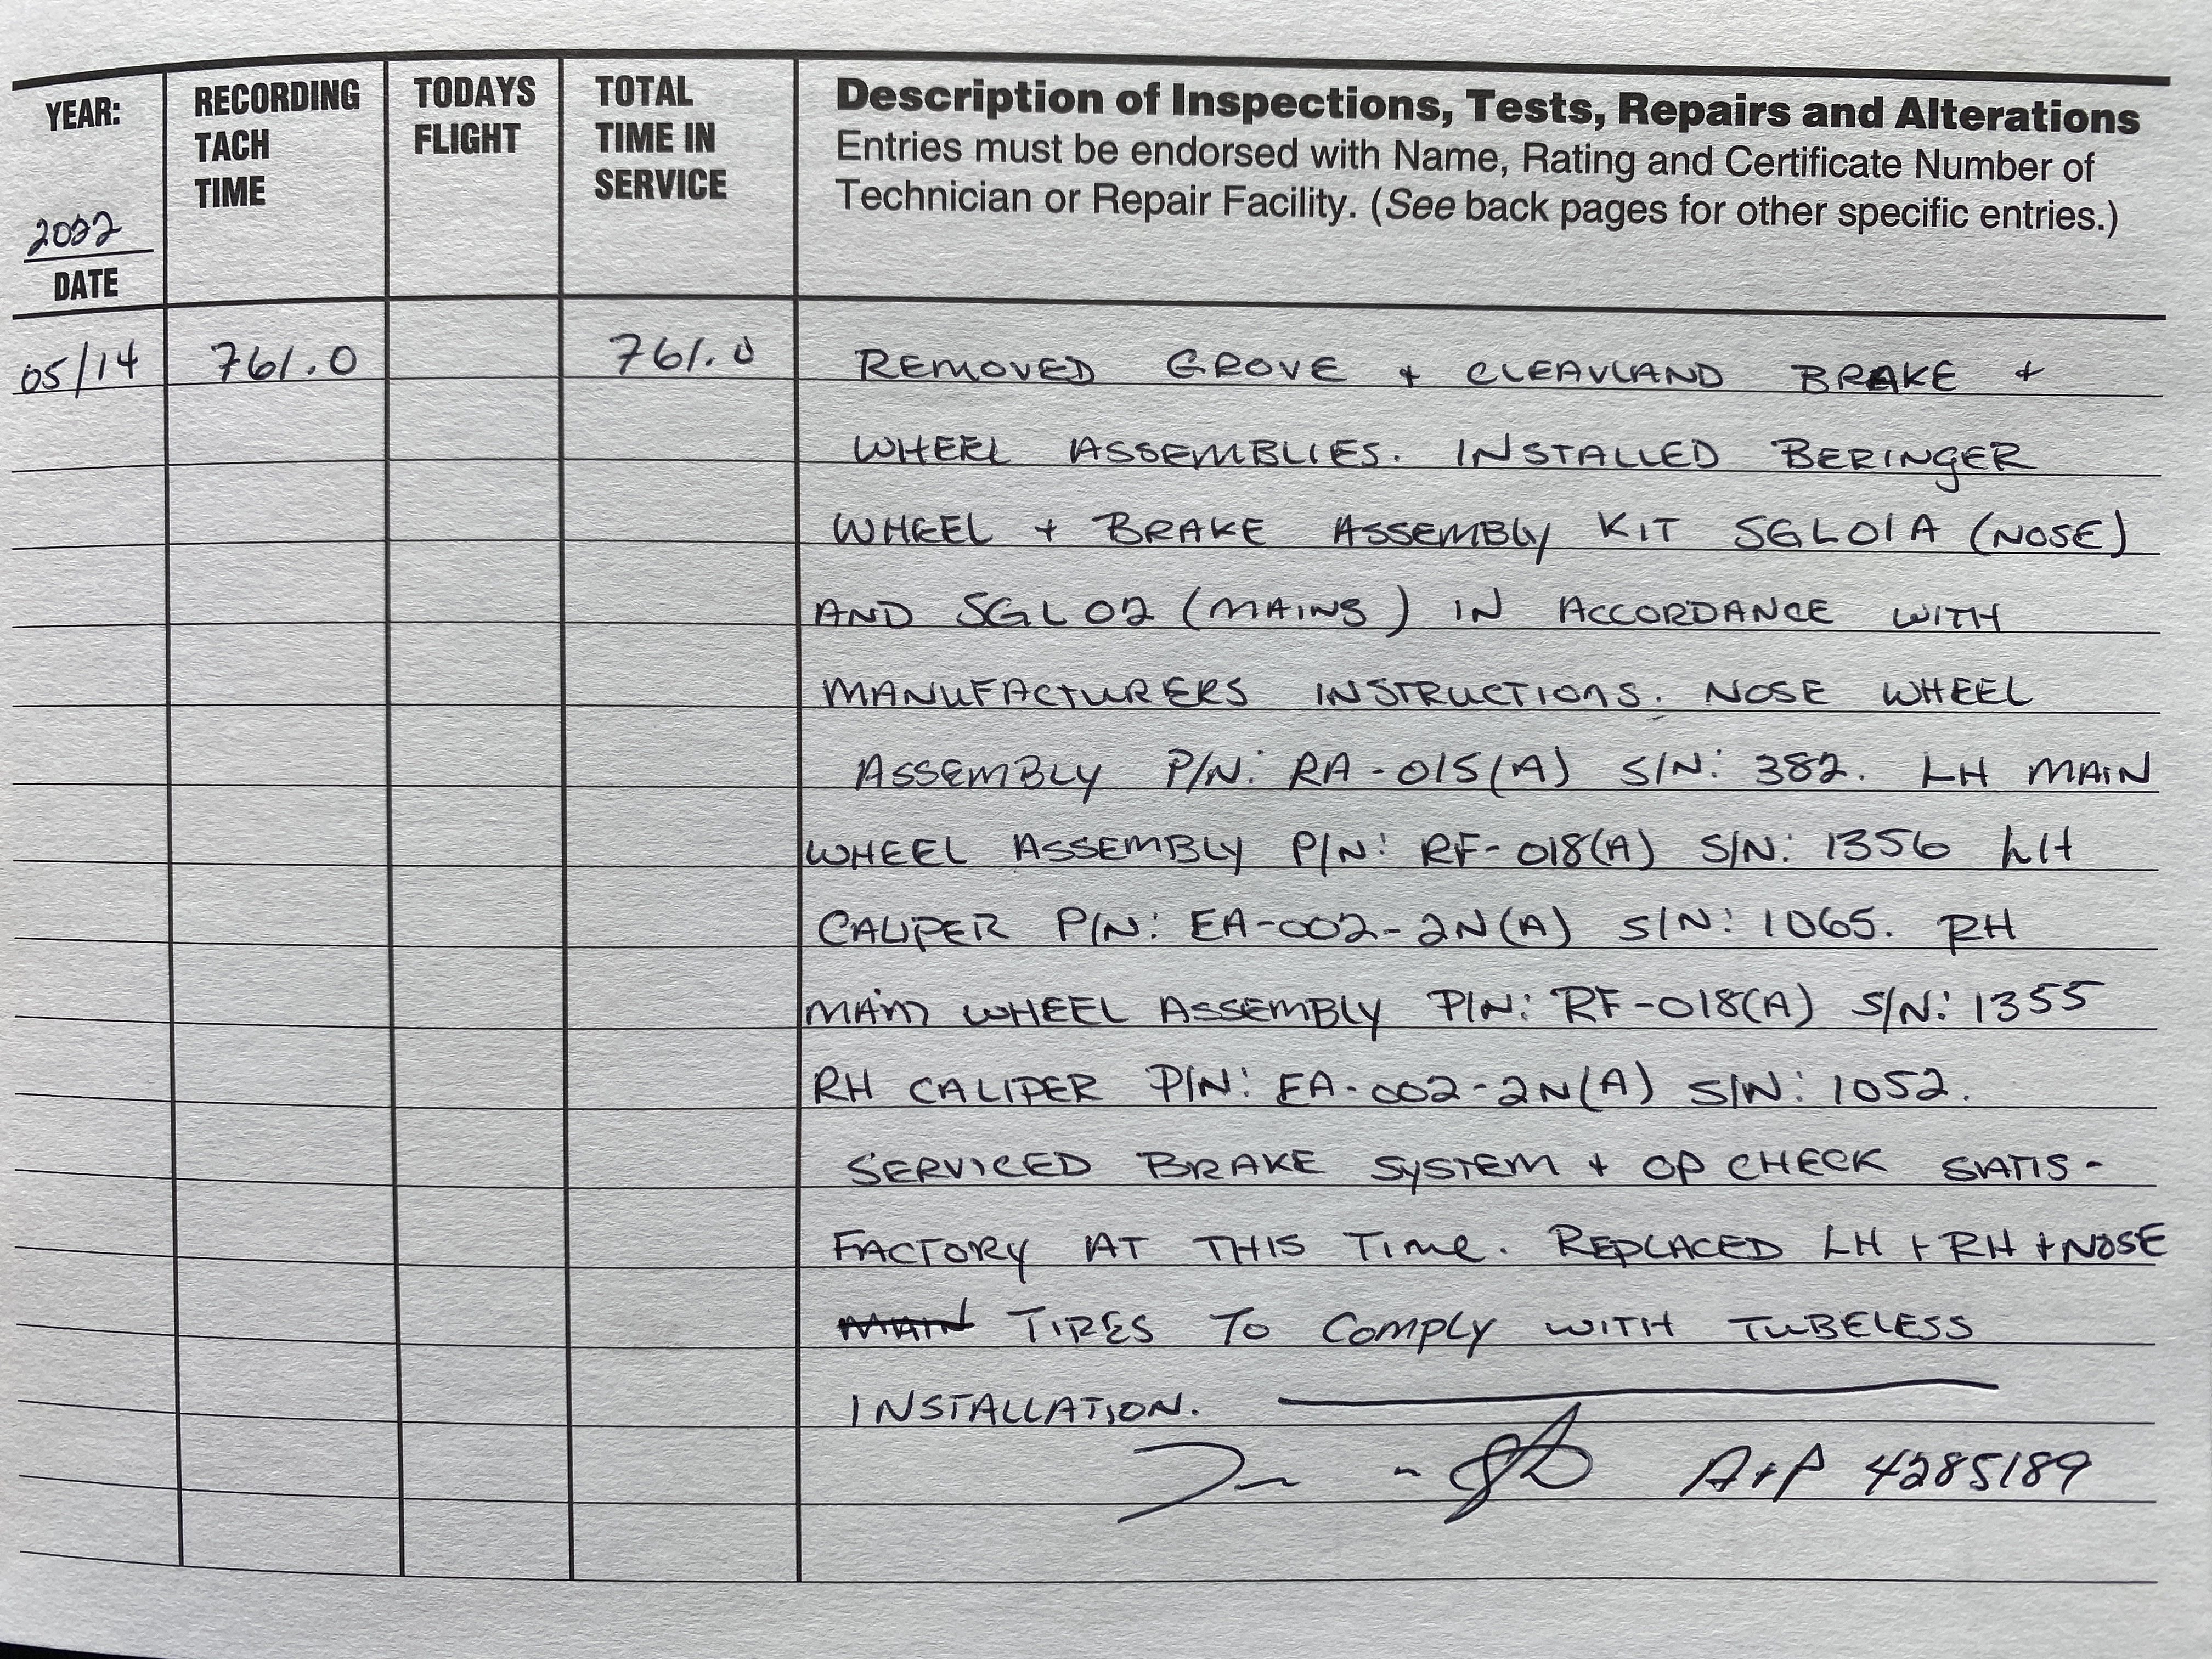 YEAR:
2022
DATE
RECORDING
TACH
TIME
TODAYS
FLIGHT
TOTAL
TIME IN
SERVICE
Description of Inspections, Tests, Repairs and Alterations
Entries must be endorsed with Name, Rating and Certificate Number of
Technician or Repair Facility. (See back pages for other specific entries.)
05/14 761.0 761.0 REMOVED GROVE + CLEAVLAND BRAKE +
WHEEL ASSEMBLIES. INSTALLED BERINGER
WHEEL + BRAKE ASSEMBLY KIT SGL01A (NOSE)
AND SGL02 (MAINS) IN ACCORDANCE WITH
MANUFACTURERS INSTRUCTIONS. NOSE WHEEL
ASSEMBLY P/N: RA-015(A) S/N: 382. LH MAIN
WHEEL ASSEMBLY P/N: RF-018(A) S/N: 1356 LH
CALIPER P/N: EA-002-2N(A) S/N: 1065. RH
MAIN WHEEL ASSEMBLY P/N: RF-018(A) S/N: 1355
RH CALIPER P/N: EA-002-2N(A) S/N: 1052.
SERVICED BRAKE SYSTEM + OP CHECK SATIS-
FACTORY AT THIS TIME. REPLACED LH + RH + NOSE
MAIN TIRES TO COMPLY WITH TUBELESS
INSTALLATION.
A+P 4285189